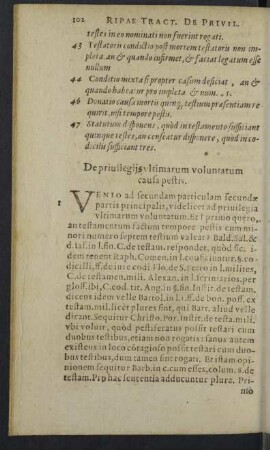 102 RIPAE TRACT. DE PRIVIL.
testes in eo nominati non fuerint rogati.
43 Testatoris conditio post mortem testatoris non im-
pleta. an & quando infirmet, & faciat legatum esse
nullum
44 Conditio mixta si propter casum deficiat, an &
quando habeatur pro impleta & num. 1.
46 Donatio causa mortis quinq, testium præsentiam re
quirit. nisi tempore pestis.
47 Statutum disponens, quòd in testamento sufficiant
quinque testes, an censeatur disponere, quòd in co-
dicillis sufficiant tres.
De priuilegijs vltimarum voluntatum
causa pestis.
1 VENIO ad secundam particulam secundæ
partis principalis, videlicet ad priuilegia
vltimarum voluntatum. Et primo quæro,
an testamentum factum tempore pestis cum mi-
nori numero septem testium valeat? Bald. Sal. &
d. Ias. in l. fin. C. de testam. respondet, quòd sic, i-
dem tenent Raph. Comen. in l. coniiciuntur. §. co-
dicilli, ff. de iure codi. Flo. de S. Petro in l. milites,
C. de testamen. mili. Alexan. in l. scriniarios, per
glos. ibi, C. eod. tit. Ang. in §. fin. Instit. de testam.
dicens idem velle Bartol. in l. 1. ff. de bon. poss. ex
testam. mil. licèt plures sint, qui Bart. aliud velle
dicant. Sequitur Christo. Por. Instit. de testa. mili.
vbi voluit, quòd pestiferatus possit testari cum
duobus testibus, etiam non rogatis: sanus autem
existens in loco cōtagioso possit testari cum duo-
bus testibus, dum tamen sint rogati. Et istam opi-
nionem sequitur Barb. in c. cum esses, colum. 8. de
testam. Pro hac sententia adducuntur plura. Pri-
mò